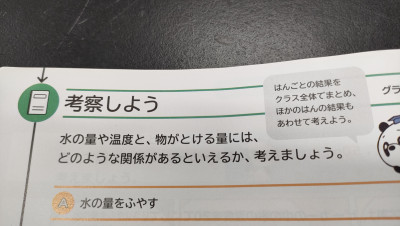 考察しよう
はんごとの結果を
クラス全体でまとめ、
ほかのはんの結果も
あわせて考えよう。
グラ
水の量や温度と、物がとける量には、
どのような関係があるといえるか、考えましょう。
A 水の量をふやす